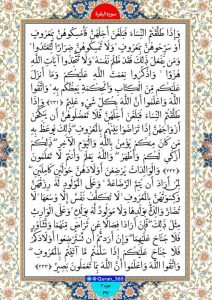 سوره البقرة
وَإِذَا طَلَّقْتُمُ النِّسَاءَ فَبَلَغْنَ أَجَلَهُنَّ فَأَمْسِكُوهُنَّ بِمَعْرُوفٍ
أَوْ سَرِّحُوهُنَّ بِمَعْرُوفٍ ۚ وَلَا تُمْسِكُوهُنَّ ضِرَارًا لِتَعْتَدُوا ۚ
وَمَنْ يَفْعَلْ ذَٰلِكَ فَقَدْ ظَلَمَ نَفْسَهُ ۚ وَلَا تَتَّخِذُوا آيَاتِ اللَّهِ
هُزُوًا ۚ وَاذْكُرُوا نِعْمَتَ اللَّهِ عَلَيْكُمْ وَمَا أَنْزَلَ
عَلَيْكُمْ مِنَ الْكِتَابِ وَالْحِكْمَةِ يَعِظُكُمْ بِهِ ۚ وَاتَّقُوا
اللَّهَ وَاعْلَمُوا أَنَّ اللَّهَ بِكُلِّ شَيْءٍ عَلِيمٌ ﴿۲۳۱﴾ وَإِذَا
طَلَّقْتُمُ النِّسَاءَ فَبَلَغْنَ أَجَلَهُنَّ فَلَا تَعْضُلُوهُنَّ أَنْ يَنْكِحْنَ
أَزْوَاجَهُنَّ إِذَا تَرَاضَوْا بَيْنَهُمْ بِالْمَعْرُوفِ ۗ ذَٰلِكَ يُوعَظُ بِهِ
مَنْ كَانَ مِنْكُمْ يُؤْمِنُ بِاللَّهِ وَالْيَوْمِ الْآخِرِ ۗ ذَٰلِكُمْ
أَزْكَىٰ لَكُمْ وَأَطْهَرُ ۗ وَاللَّهُ يَعْلَمُ وَأَنْتُمْ لَا تَعْلَمُونَ
﴿۲۳۲﴾ وَالْوَالِدَاتُ يُرْضِعْنَ أَوْلَادَهُنَّ حَوْلَيْنِ كَامِلَيْنِ ۖ
لِمَنْ أَرَادَ أَنْ يُتِمَّ الرَّضَاعَةَ ۚ وَعَلَى الْمَوْلُودِ لَهُ رِزْقُهُنَّ
وَكِسْوَتُهُنَّ بِالْمَعْرُوفِ ۚ لَا تُكَلَّفُ نَفْسٌ إِلَّا وُسْعَهَا ۚ لَا
تُضَارَّ وَالِدَةٌ بِوَلَدِهَا وَلَا مَوْلُودٌ لَهُ بِوَلَدِهِ ۚ وَعَلَى الْوَارِثِ
مِثْلُ ذَٰلِكَ ۗ فَإِنْ أَرَادَا فِصَالًا عَنْ تَرَاضٍ مِنْهُمَا وَتَشَاوُرٍ
فَلَا جُنَاحَ عَلَيْهِمَا ۗ وَإِنْ أَرَدْتُمْ أَنْ تَسْتَرْضِعُوا أَوْلَادَكُمْ
فَلَا جُنَاحَ عَلَيْكُمْ إِذَا سَلَّمْتُمْ مَا آتَيْتُمْ بِالْمَعْرُوفِ ۗ
وَاتَّقُوا اللَّهَ وَاعْلَمُوا أَنَّ اللَّهَ بِمَا تَعْمَلُونَ بَصِيرٌ ﴿۲۳۳﴾
@Quran_365
جزء ۲
۳۷